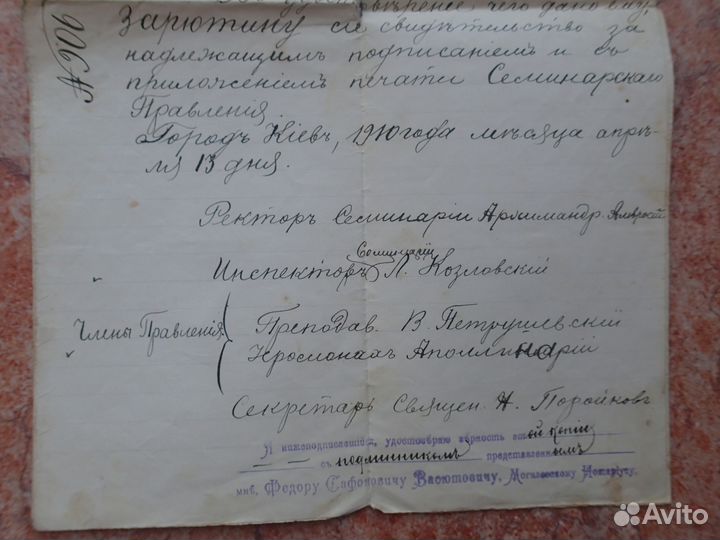 удостовѣренiе, чего дано ему,
Зарютину сіе свидѣтельство за
надлежащимъ подписаніемъ и съ
приложеніемъ печати Семинарскаго
Правленія.
Городъ Кіевъ, 1910 года мѣсяца апрѣ-
ля 13 дня.
Ректоръ Семинаріи Архимандр. Амвросій
Инспекторъ Семинаріи Л. Козловскій
Члены Правленія
Преподав. В. Петрушевскій
Іеромонахъ Аполлинарій
Секретарь Священ. Н.
Я нижеподписавшійся, удостовѣряю вѣрность сей копіи
съ подлинникомъ представленнымъ
мнѣ, Федору Сафоновичу Васютовичу, Могилевскому Нотаріусу,
Avito